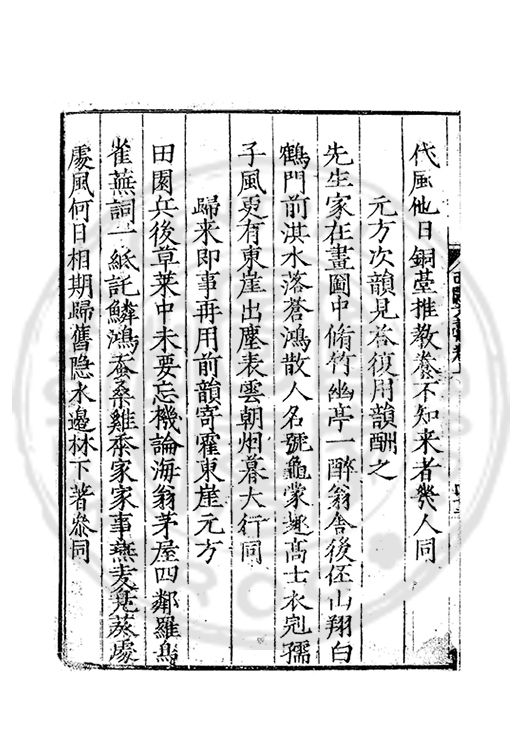 代風他日銅䑓推教養不知来者幾人同
元方次韻見答復用韻酬之
先生家在畫圖中脩竹幽亭一醉翁舎後伾山翔白
鶴門前淇水落蒼鴻散人名號龜蒙趣高士衣冠孺
子風更有東崖出塵表雲朝烟暮大行同
歸来即事再用前韻寄霍東崖元方
田園兵後草莱中未要忘機論海翁茅屋四鄰羅鳥
雀蕪詞一紙託鱗鴻蚕桑雞黍家家事燕麦兎葵處
處風何日相期歸舊隐水邉林下著叅同